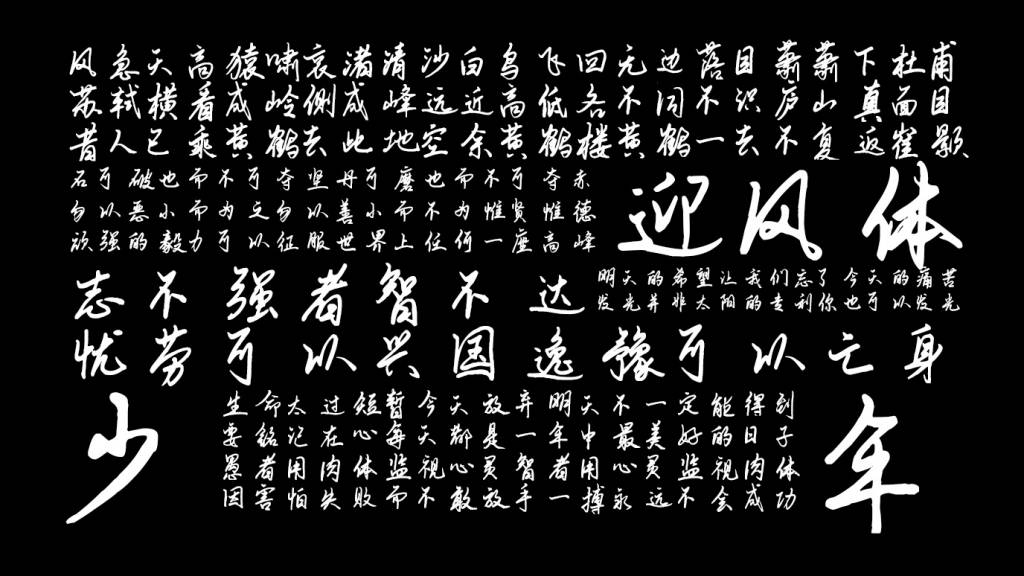 风急天高猿啸哀渚清沙白鸟飞回无边落目萧萧下杜甫
苏轼横看成岭侧成峰远近高低各不同不识庐山真面目
昔人已乘黄鹤去此地空余黄鹤楼黄鹤一去不复返崔颢
石可破也而不可夺坚丹可磨也而不可夺赤
勿以恶小而为之勿以善小而不为惟贤惟德
顽强的毅力可以征服世界上任何一座高峰
迎风体
志不强者智不达
明天的希望让我们忘了今天的痛苦
发光并非太阳的专利你也可以发光
忧劳可以兴国逸豫可以亡身
少年
生命太过短暂今天放弃明天不一定能得到
要铭记在心每天都是一年中最美好的日子
愚者用肉体监视心灵智者用心灵监视肉体
因害怕失败而不敢放手一搏永远不会成功